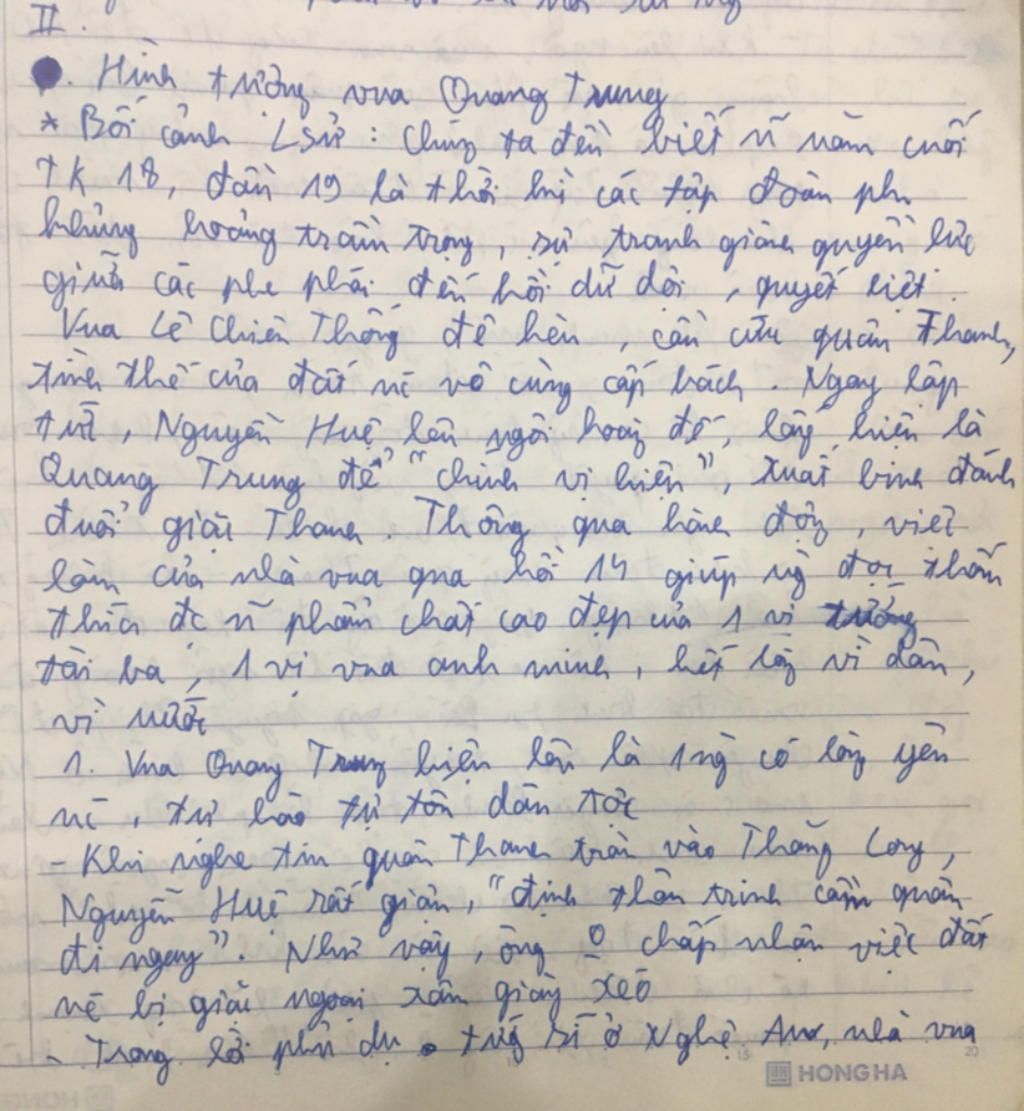 II.
. Hình tượng vua Quang Trung
* Bối cảnh Lsử : Chúng ta đều biết ~ năm cuối
TK 18, đầu 19 là thời kì các tập đoàn pk
khủng hoảng trầm trọng, sự tranh giành quyền lực
giữa các phe phái đến hồi dữ dội, quyết liệt.
Vua Lê Chiêu Thống đê hèn, cầu cứu quân Thanh,
tình thế của đất nc vô cùng cấp bách. Ngay lập
tức, Nguyễn Huệ lên ngôi hoàng đế, lấy hiệu là
Quang Trung để "chính vị hiệu", xuất binh đánh
đuổi giặc Thanh. Thông qua hành động, việc
làm của nhà vua qua hồi 14 giúp ng đọc thấm
thía đc ~ phẩm chất cao đẹp của 1 vị tướng
tài ba, 1 vị vua anh minh, hết lòng vì dân,
vì nước
1. Vua Quang Trung hiện lên là 1 ng có lòng yêu
nc, tự hào tự tôn dân tộc
- Khi nghe tin quân Thanh tràn vào Thăng Long,
Nguyễn Huệ rất giận, "định thân trinh cầm quân
đi ngay". Như vậy, ông o chấp nhận việc đất
nc bị giặc ngoại xâm giày xéo
- Trong lời phủ dụ tướng sĩ ở Nghệ An, nhà vua
HONG HA
15
20